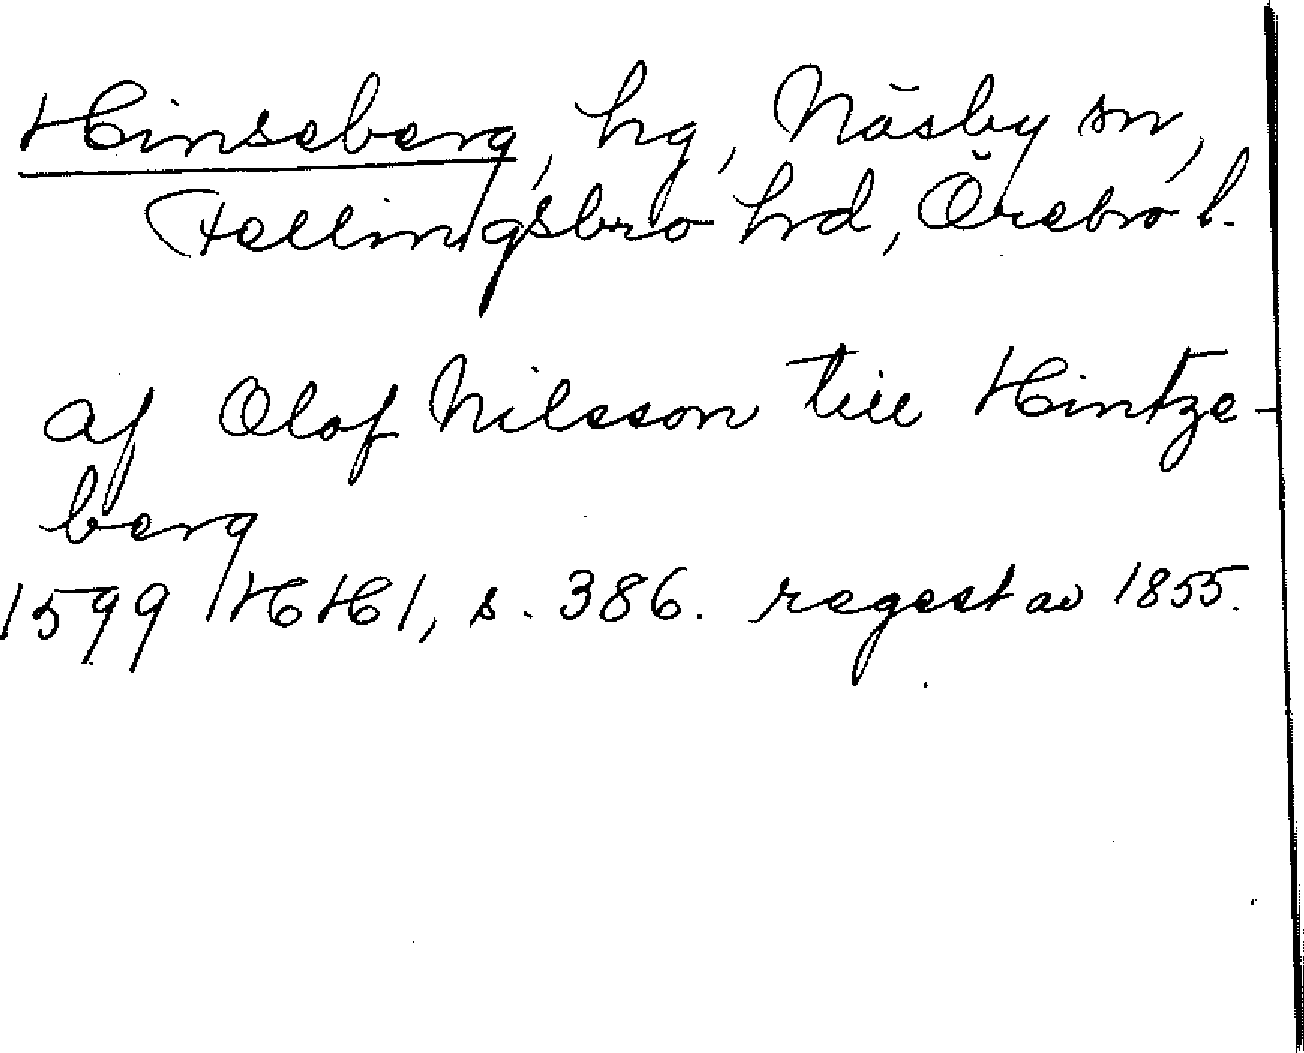 Hinseberg, hg, Näsby sn,
Fellingsbro hd, Örebro l.
af Olof Nilsson till Hintze-
berg
1599 HH 1, s. 386. regest av 1855.